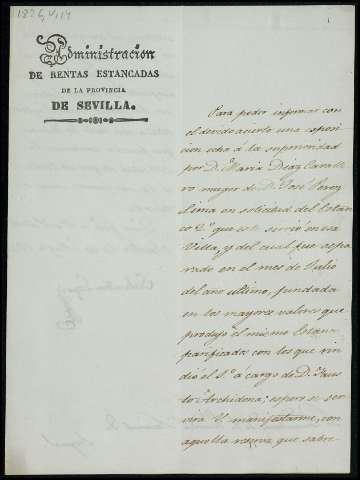 Administracion
DE RENTAS ESTANCADAS
DE LA PROVINCIA
DE SEVILLA.
Para poder informar con
el devido acierto una esposi
cion echa á la superioridad
por D.ª Maria Diaz Cavalle
ro muger de D. José Perez
Lima en solicitud del Estan
co 2.º que servió en esa
Villa, y del cual fue sepa
rado en el mes de Julio
del año ultimo, fundada
en los mayores valores que
produjo el mismo Estanco
parificada con los que rin
dió el 1.º á cargo de D. Faus
to Archidona; espero se ser
virá V. manifestarme, con
aquella reserva que sabe